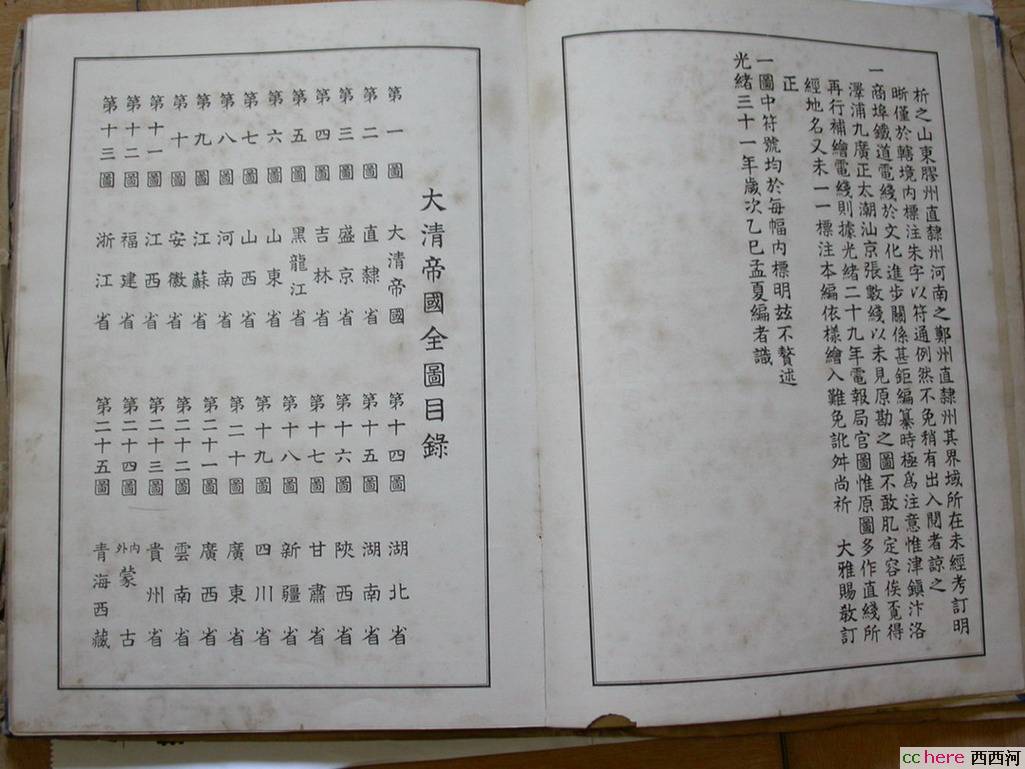 析之山東膠州直隸州河南之鄭州直隸州其界域所在未經考訂明
晰僅於轄境内標注朱字以符通例然不免稍有出入閱者諒之
一商埠鐵道電綫於文化進步關係甚鉅編纂時極爲注意惟津鎮汴洛
澤浦九廣正太潮汕京張數綫以未見原勘之圖不敢肊定容俟覔得
再行補繪電綫則據光緒二十九年電報局官圖惟原圖多作直綫所
經地名又未一一標注本編依樣繪入難免訛舛尚祈 大雅賜敎訂
正
一圖中符號均於每幅内標明玆不贅述
光緒三十一年歲次乙巳孟夏編者識
大清帝國全圖目錄
第一圖 大清帝國
第二圖 直隸省
第三圖 盛京省
第四圖 吉林省
第五圖 黑龍江省
第六圖 山東省
第七圖 山西省
第八圖 河南省
第九圖 江蘇省
第十圖 安徽省
第十一圖 江西省
第十二圖 福建省
第十三圖 浙江省
第十四圖 湖北省
第十五圖 湖南省
第十六圖 陝西省
第十七圖 甘肅省
第十八圖 新疆省
第十九圖 四川省
第二十圖 廣東省
第二十一圖 廣西省
第二十二圖 雲南省
第二十三圖 貴州省
第二十四圖 内外蒙古
第二十五圖 青海西藏
cchere 西西河